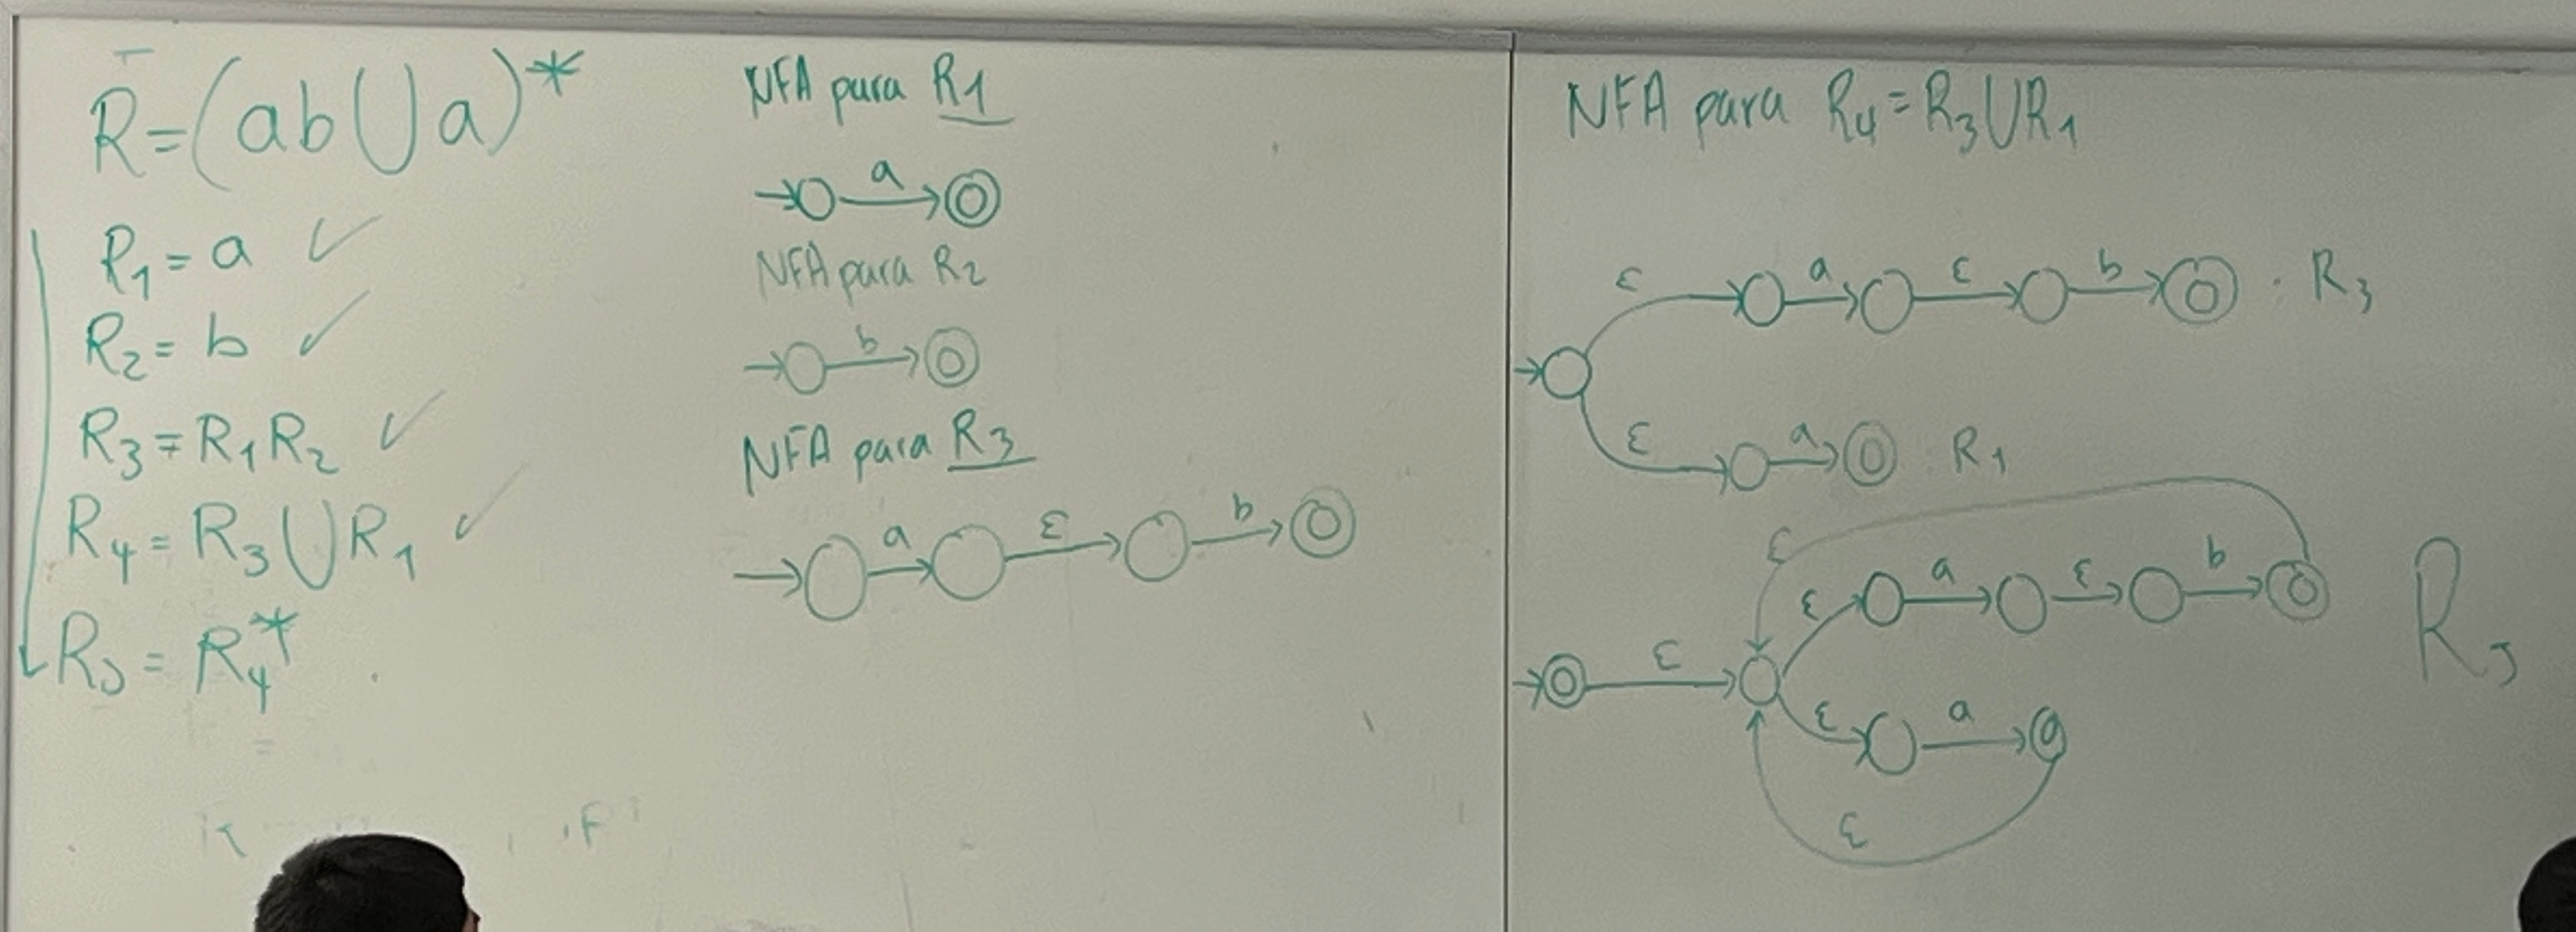 R=(ab∪a)*
R1=a ✓
R2=b ✓
R3=R1R2 ✓
R4=R3∪R1 ✓
R5=R4*
NFA para R1
a
NFA para R2
b
NFA para R3
a ε b
NFA para R4=R3∪R1
ε a ε b R3
ε a R1
ε
ε a ε b
ε R5
ε a
ε